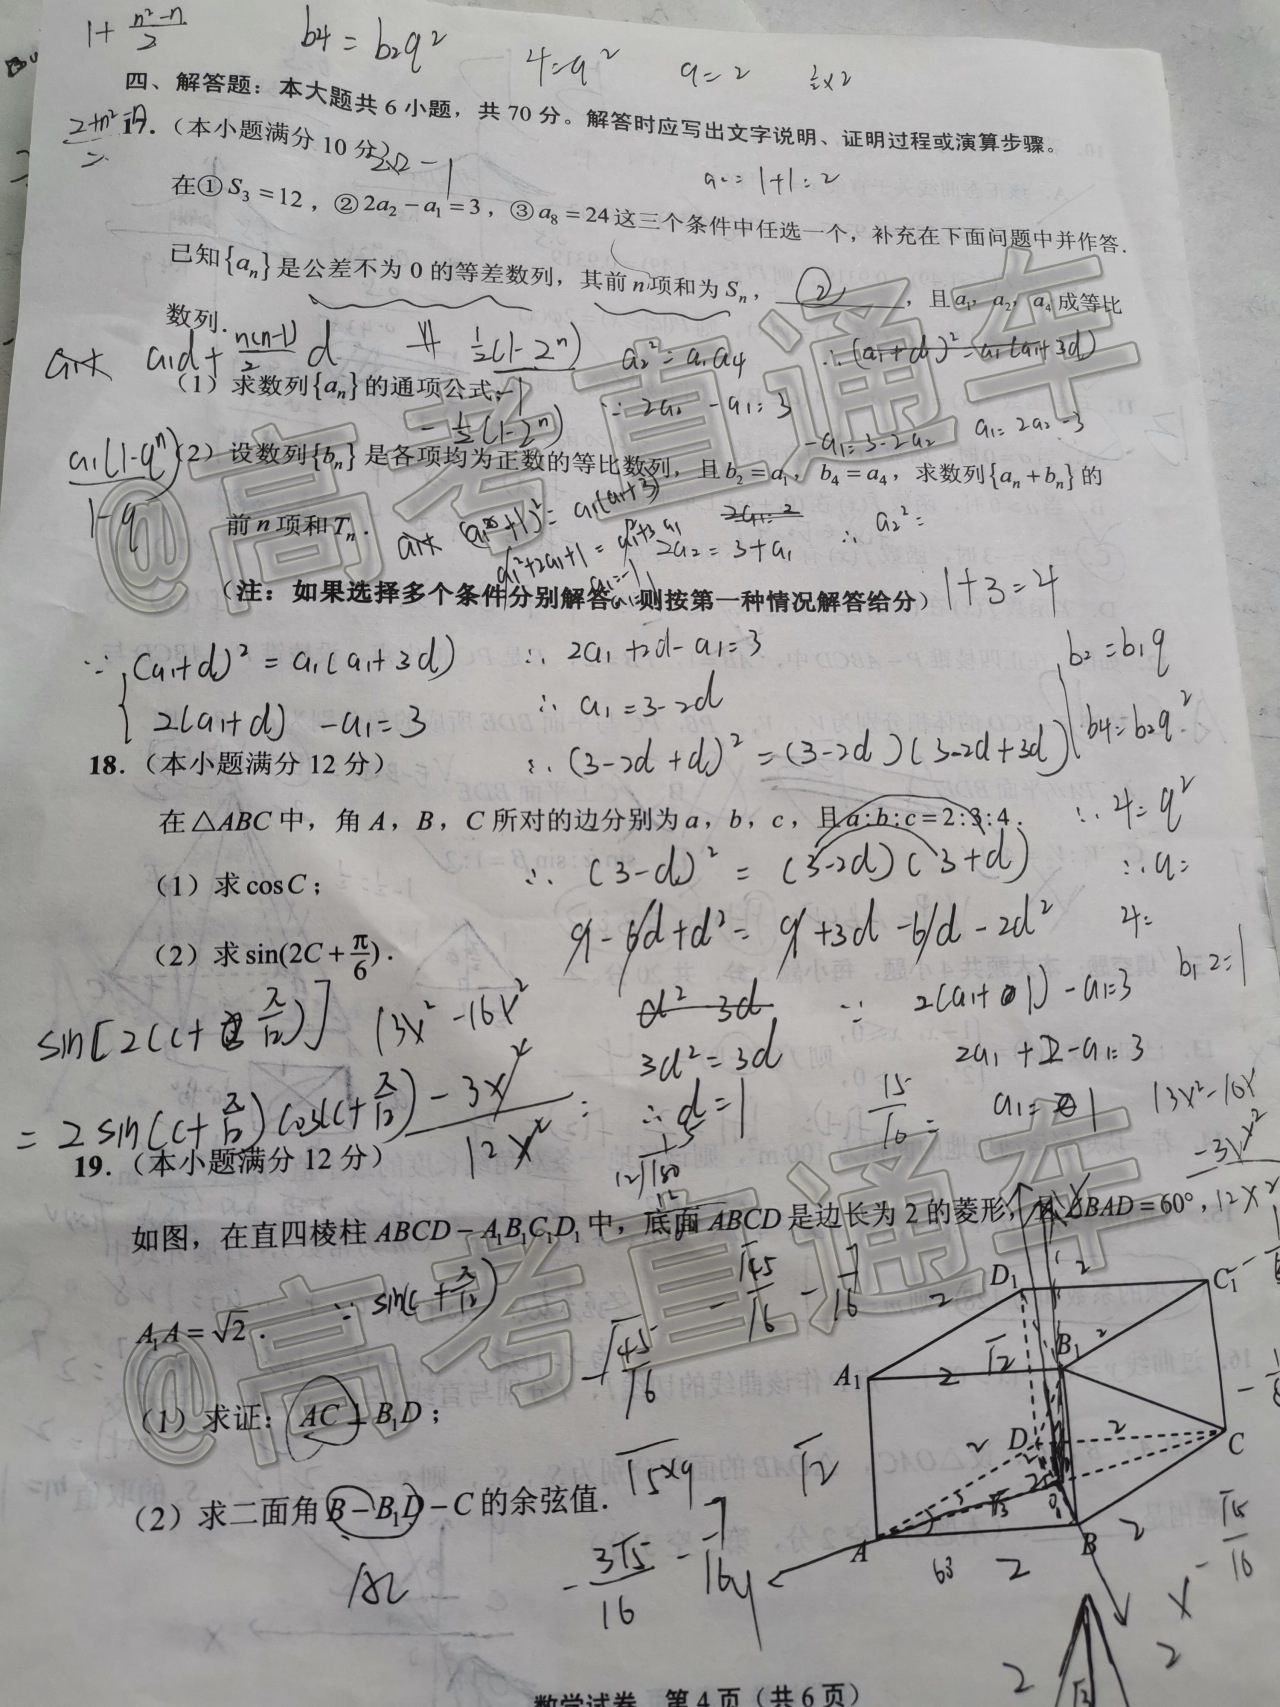 1+ (n²-n)/2
b4 = b2q²
4=q²
q=2
½×2
四、解答题：本大题共6小题，共70分。解答时应写出文字说明、证明过程或演算步骤。
17.（本小题满分10分）
a2=1+1=2
在①S₃=12，②2a₂-a₁=3，③a₈=24这三个条件中任选一个，补充在下面问题中并作答.
已知{aₙ}是公差不为0的等差数列，其前n项和为Sₙ，②，且a₁，a₂，a₄成等比
数列.
a1d+ n(n-1)/2 d
½(1-2ⁿ)
a2²=a1a4
∴(a1+d)²=a1(a1+3d)
（1）求数列{aₙ}的通项公式；
∵2a2-a1=3
-½(1-2ⁿ)
-a1=3-2a2
a1=2a2-3
a1(1-qⁿ)/1-q
（2）设数列{bₙ}是各项均为正数的等比数列，且b₂=a₁，b₄=a₄，求数列{aₙ+bₙ}的
前n项和Tₙ.
(a1+1)²=a1(a1+3)
2a1=2
∴a2²=
a1²+2a1+1=a1²+3a1
2a2=3+a1
（注：如果选择多个条件分别解答，则按第一种情况解答给分）
1+3=4
∵(a1+d)²=a1(a1+3d)
∴2a1+2d-a1=3
b2=b1q
2(a1+d)-a1=3
∴a1=3-2d
b4=b2q²
18.（本小题满分12分）
∴(3-2d+d)²=(3-2d)(3-2d+3d)
在△ABC中，角A，B，C所对的边分别为a，b，c，且a:b:c=2:3:4.
∴4=q²
（1）求cosC；
∴(3-d)²=(3-2d)(3+d)
∴q=
9-6d+d²=9+3d-6d-2d²
4=
（2）求sin(2C+π/6).
b1 2=1
sin[2(C+π/12)]
13x²-16x²
d² 3d
∵2(a1+1)-a1=3
3d²=3d
2a1+2-a1=3
=2sin(C+π/12)cos(C+π/12)
-3x²/12x²
∴d=1
15/16=
a1=1
13x²-16x²
-3x²/12x²
12√180
19.（本小题满分12分）
如图，在直四棱柱ABCD-A₁B₁C₁D₁中，底面ABCD是边长为2的菱形，且∠BAD=60°，
A₁A=√2.
∵sin(C+π/12)
-√45/16-7/16
√45/16
（1）求证：AC⊥B₁D；
√15×9
√2
（2）求二面角B-B₁D-C的余弦值.
-3√15/16-7/16
AC
D₁
C₁
B₁
A₁
D
C
A
B
2
√2
√3
y
x
√15/16
数学试卷 第4页（共6页）
@高考直通车
@高考直通车